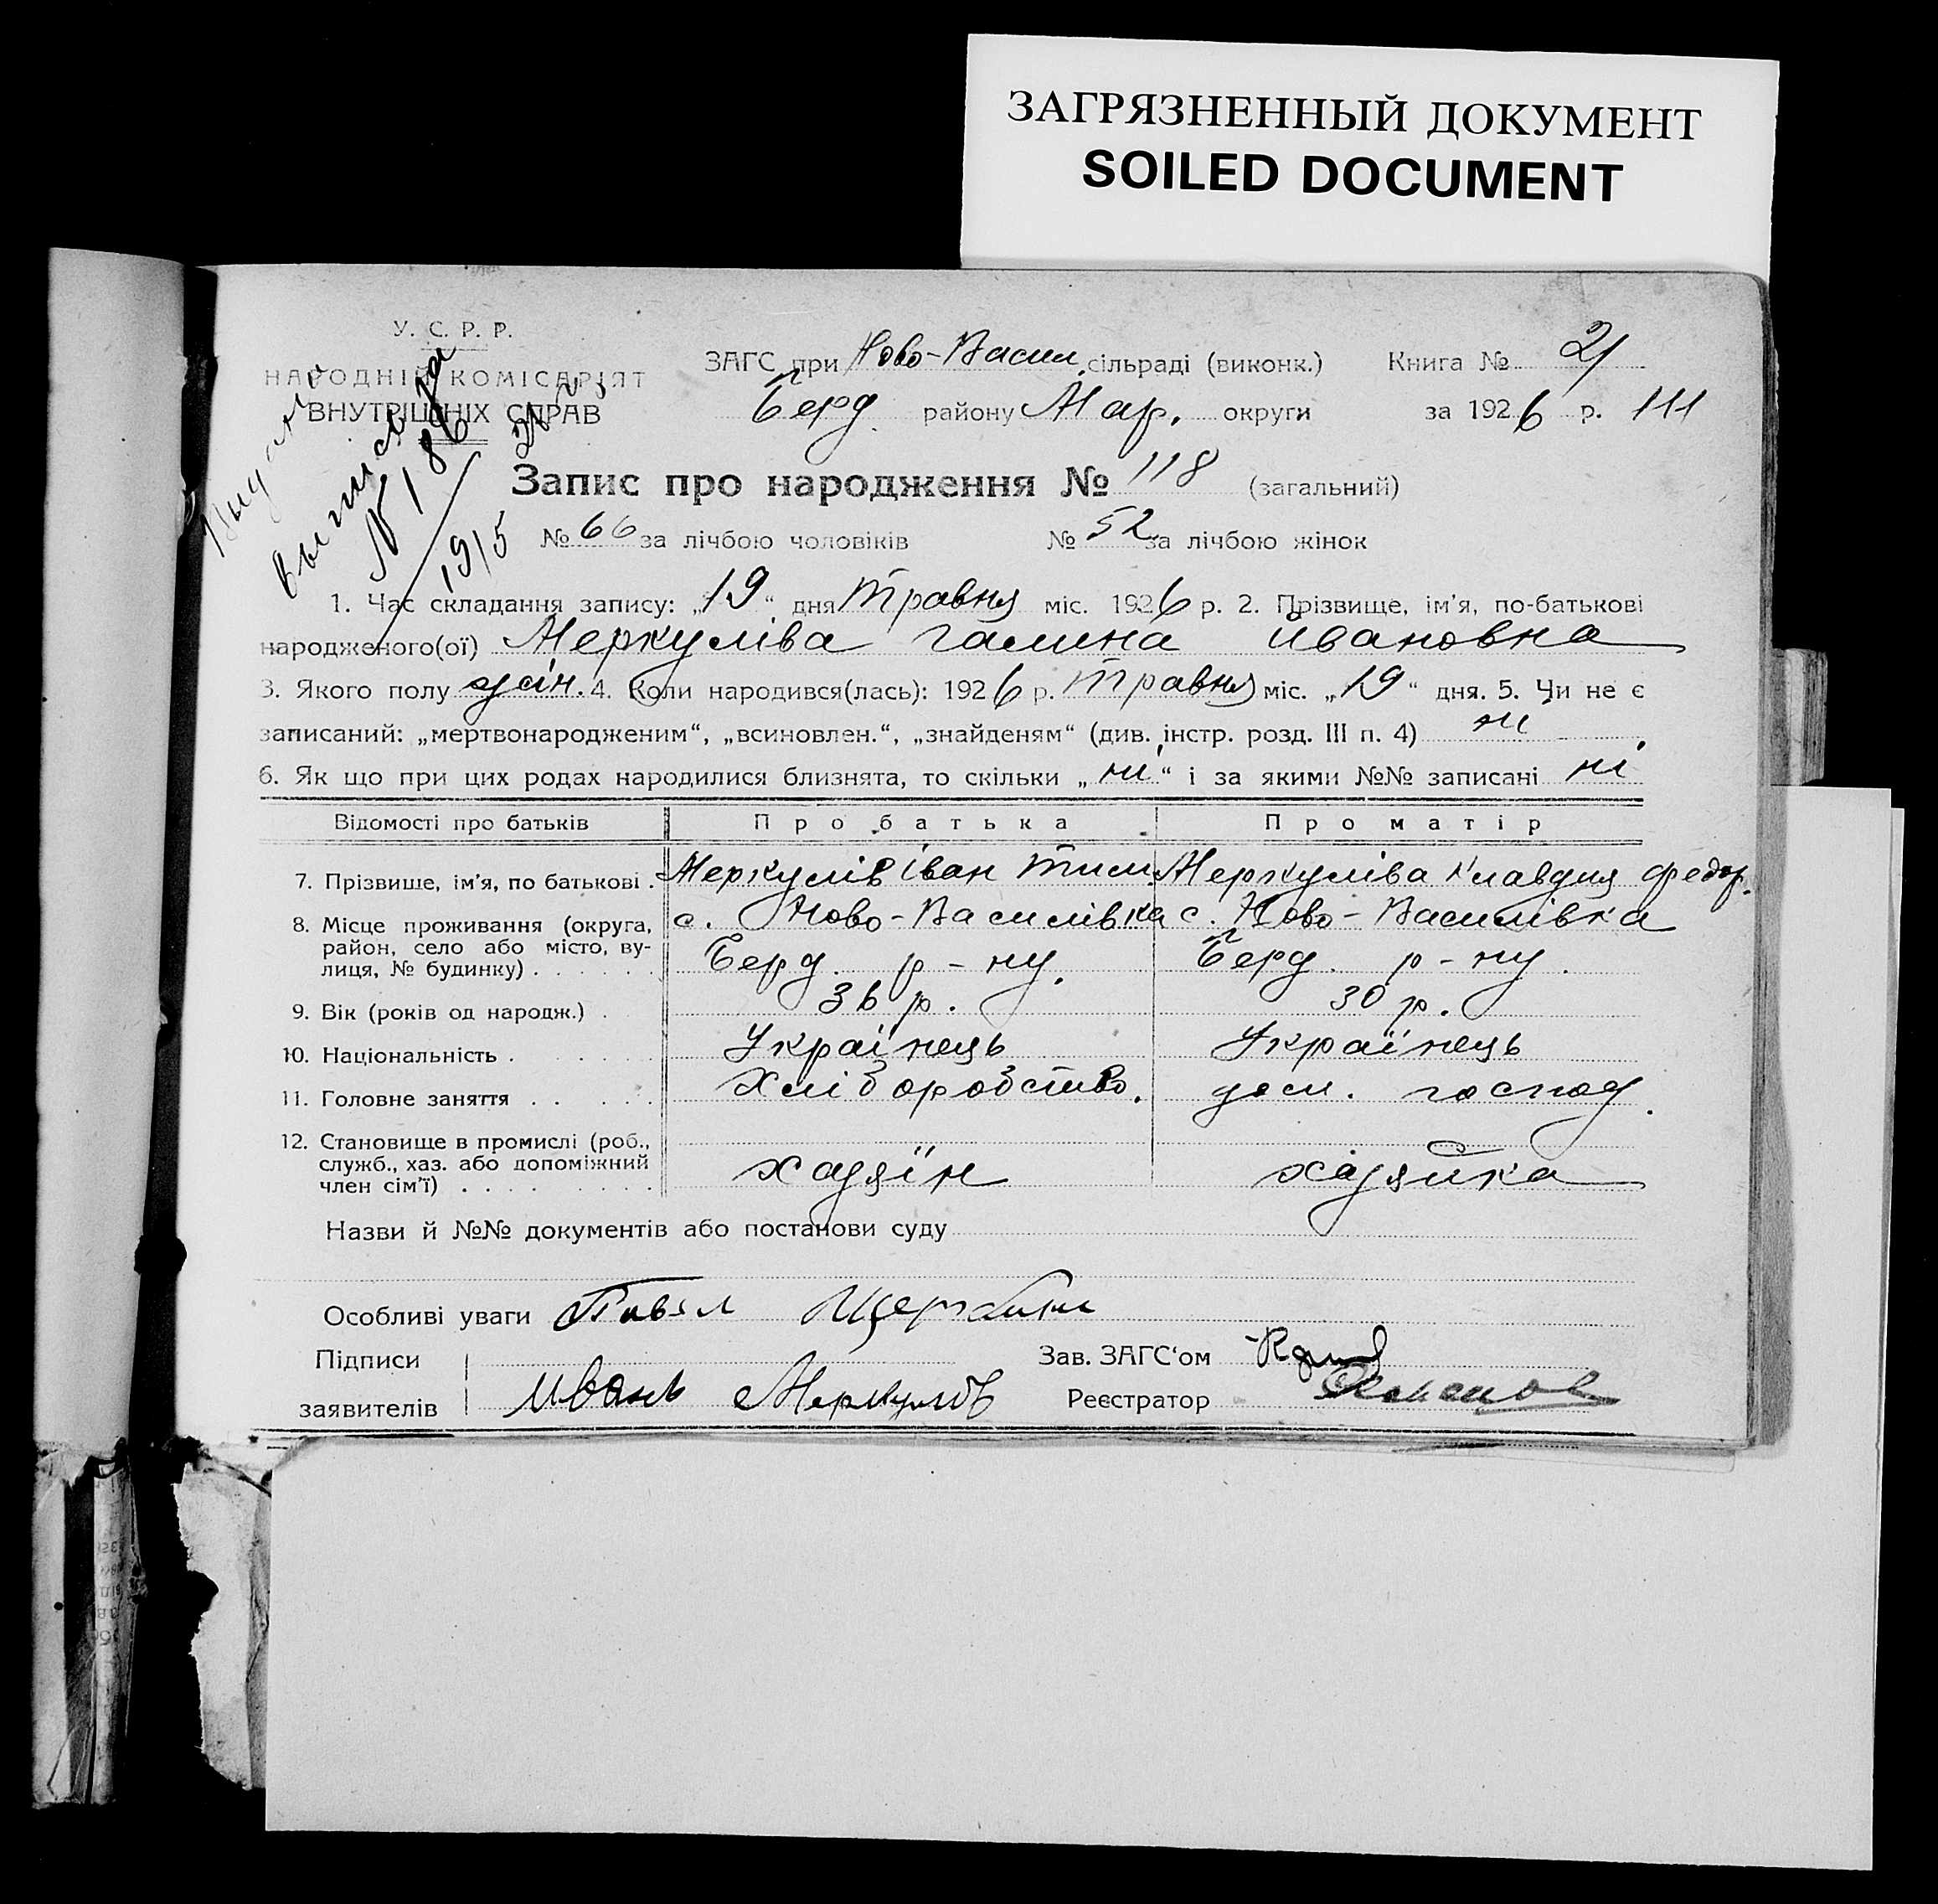 ЗАГРЯЗНЕННЫЙ ДОКУМЕНТ
SOILED DOCUMENT
У. С. Р. Р.
НАРОДНІЙ КОМІСАРІЯТ
ВНУТРІШНІХ СПРАВ
ЗАГС при Ново-Васил. сільраді (виконк.) Книга № 2/
Берд. району Мар. округи за 1926 р. 111
№ 186
19/5
Запис про народження № 118 (загальний)
№ 66 за лічбою чоловіків № 52 за лічбою жінок
1. Час складання запису: „19“ дня Травня міс. 1926 р. 2. Прізвище, ім’я, по-батькові
народженого(ої) Меркуліва Галина Ивановна
3. Якого полу жін. 4. Коли народився(лась): 1926 р. Травня міс. „19“ дня. 5. Чи не є
записаний: „мертвонародженим“, „всиновлен.“, „знайденям“ (див. інстр. розд. III п. 4) ні
6. Як що при цих родах народилися близнята, то скільки „ні“ і за якими №№ записані ні
Відомості про батьків Про батька Про матір
7. Прізвище, ім’я, по батькові . Меркулів Іван Тим. Меркуліва Клавдия Федор.
8. Місце проживання (округа, район, село або місто, вулиця, № будинку) . . . . . . с. Ново-Василівка Берд. р-ну. с. Ново-Василівка Берд. р-ну.
9. Вік (років од народж.) . 36 р. 30 р.
10. Національність . . . . . Українець Українець
11. Головне заняття . . . . . Хліборобство. дом. господ.
12. Становище в промислі (роб., служб., хаз. або допоміжний член сім’ї) . . . . . . . . хазяїн хазяйка
Назви й №№ документів або постанови суду
Особливі уваги Павел
Підписи Зав. ЗАГС‘ом
заявителів Иванъ Меркуловъ Реєстратор